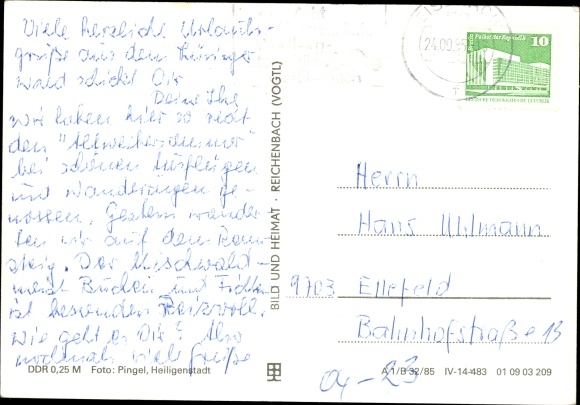 Viele herzliche Urlaubs-
grüße aus dem Thüringer
Wald schickt Dir
Deine
wir haben hier so recht
den "Altweibersommer"
bei schönen Ausflügen
und Wanderungen ge-
nossen. Gestern wander-
ten wir auf dem Renn-
steig. Der Mischwald -
meist Buchen und Fichten
ist besonders Reizvoll.
Wie geht es Dir? Also
nochmals viele Grüße
DDR 0,25 M Foto: Pingel, Heiligenstadt
BILD UND HEIMAT · REICHENBACH (VOGTL)
24.09.
Berlin Palast der Republik
10
DEUTSCHE DEMOKRATISCHE REPUBLIK
Herrn
Hans Uhlmann
9703 Ellefeld
Bahnhofstraße 13
04-23
A 1/B 32/85 IV-14-483 01 09 03 209